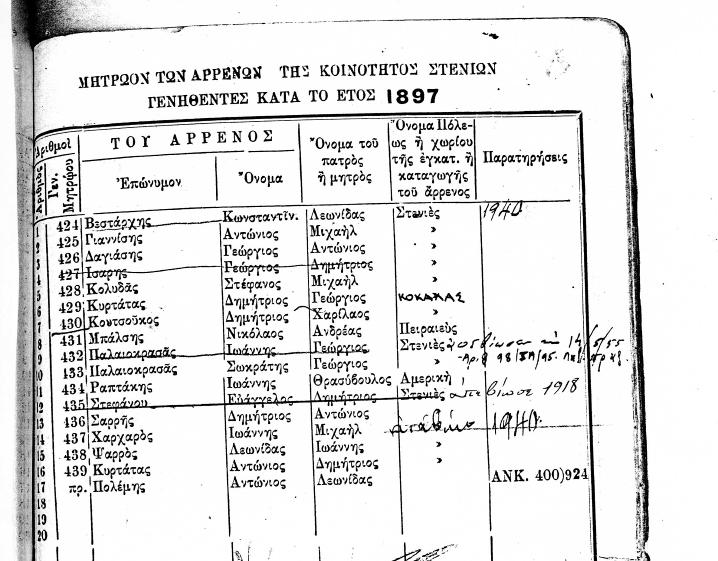 ΜΗΤΡΩΟΝ ΤΩΝ ΑΡΡΕΝΩΝ ΤΗΣ ΚΟΙΝΟΤΗΤΟΣ ΣΤΕΝΙΩΝ
ΓΕΝΗΘΕΝΤΕΣ ΚΑΤΑ ΤΟ ΕΤΟΣ 1897
Ἀριθμοὶ ΤΟΥ ΑΡΡΕΝΟΣ Ὄνομα τοῦ πατρὸς ἢ μητρὸς Ὄνομα Πόλεως ἢ χωρίου τῆς ἐγκατ. ἢ καταγωγῆς τοῦ ἄρρενος Παρατηρήσεις
Ἀριθμὸς Γεν. Μητρῴου Ἐπώνυμον Ὄνομα
1 424 Βεστάρχης Κωνσταντῖν. Λεωνίδας Στενιὲς 1940
2 425 Γιαννίσης Ἀντώνιος Μιχαὴλ »
3 426 Δαγιάσης Γεώργιος Ἀντώνιος »
4 427 Ἰσαρης Γεώργιος Δημήτριος »
5 428 Κολυδᾶς Στέφανος Μιχαὴλ »
6 429 Κυρτάτας Δημήτριος Γεώργιος ΚΟΚΑΛΑΣ
7 430 Κουτσοῦκος Δημήτριος Χαρίλαος »
8 431 Μπάλσης Νικόλαος Ἀνδρέας Πειραιεὺς
9 432 Παλαιοκρασᾶς Ἰωάννης Γεώργιος Στενιὲς
10 433 Παλαιοκρασᾶς Σωκράτης Γεώργιος »
11 434 Ραπτάκης Ἰωάννης Θρασύβουλος Ἀμερικὴ
12 435 Στεφάνου Εὐάγγελος Δημήτριος Στενιὲς 1918
13 436 Σαρρῆς Δημήτριος Ἀντώνιος »
14 437 Χαρχαρὸς Ἰωάννης Μιχαὴλ 1940
15 438 Ψαρρὸς Λεωνίδας Ἰωάννης »
16 439 Κυρτάτας Ἀντώνιος Δημήτριος »
17 πρ. Πολέμης Ἀντώνιος Λεωνίδας ΑΝΚ. 400)924
18
19
20